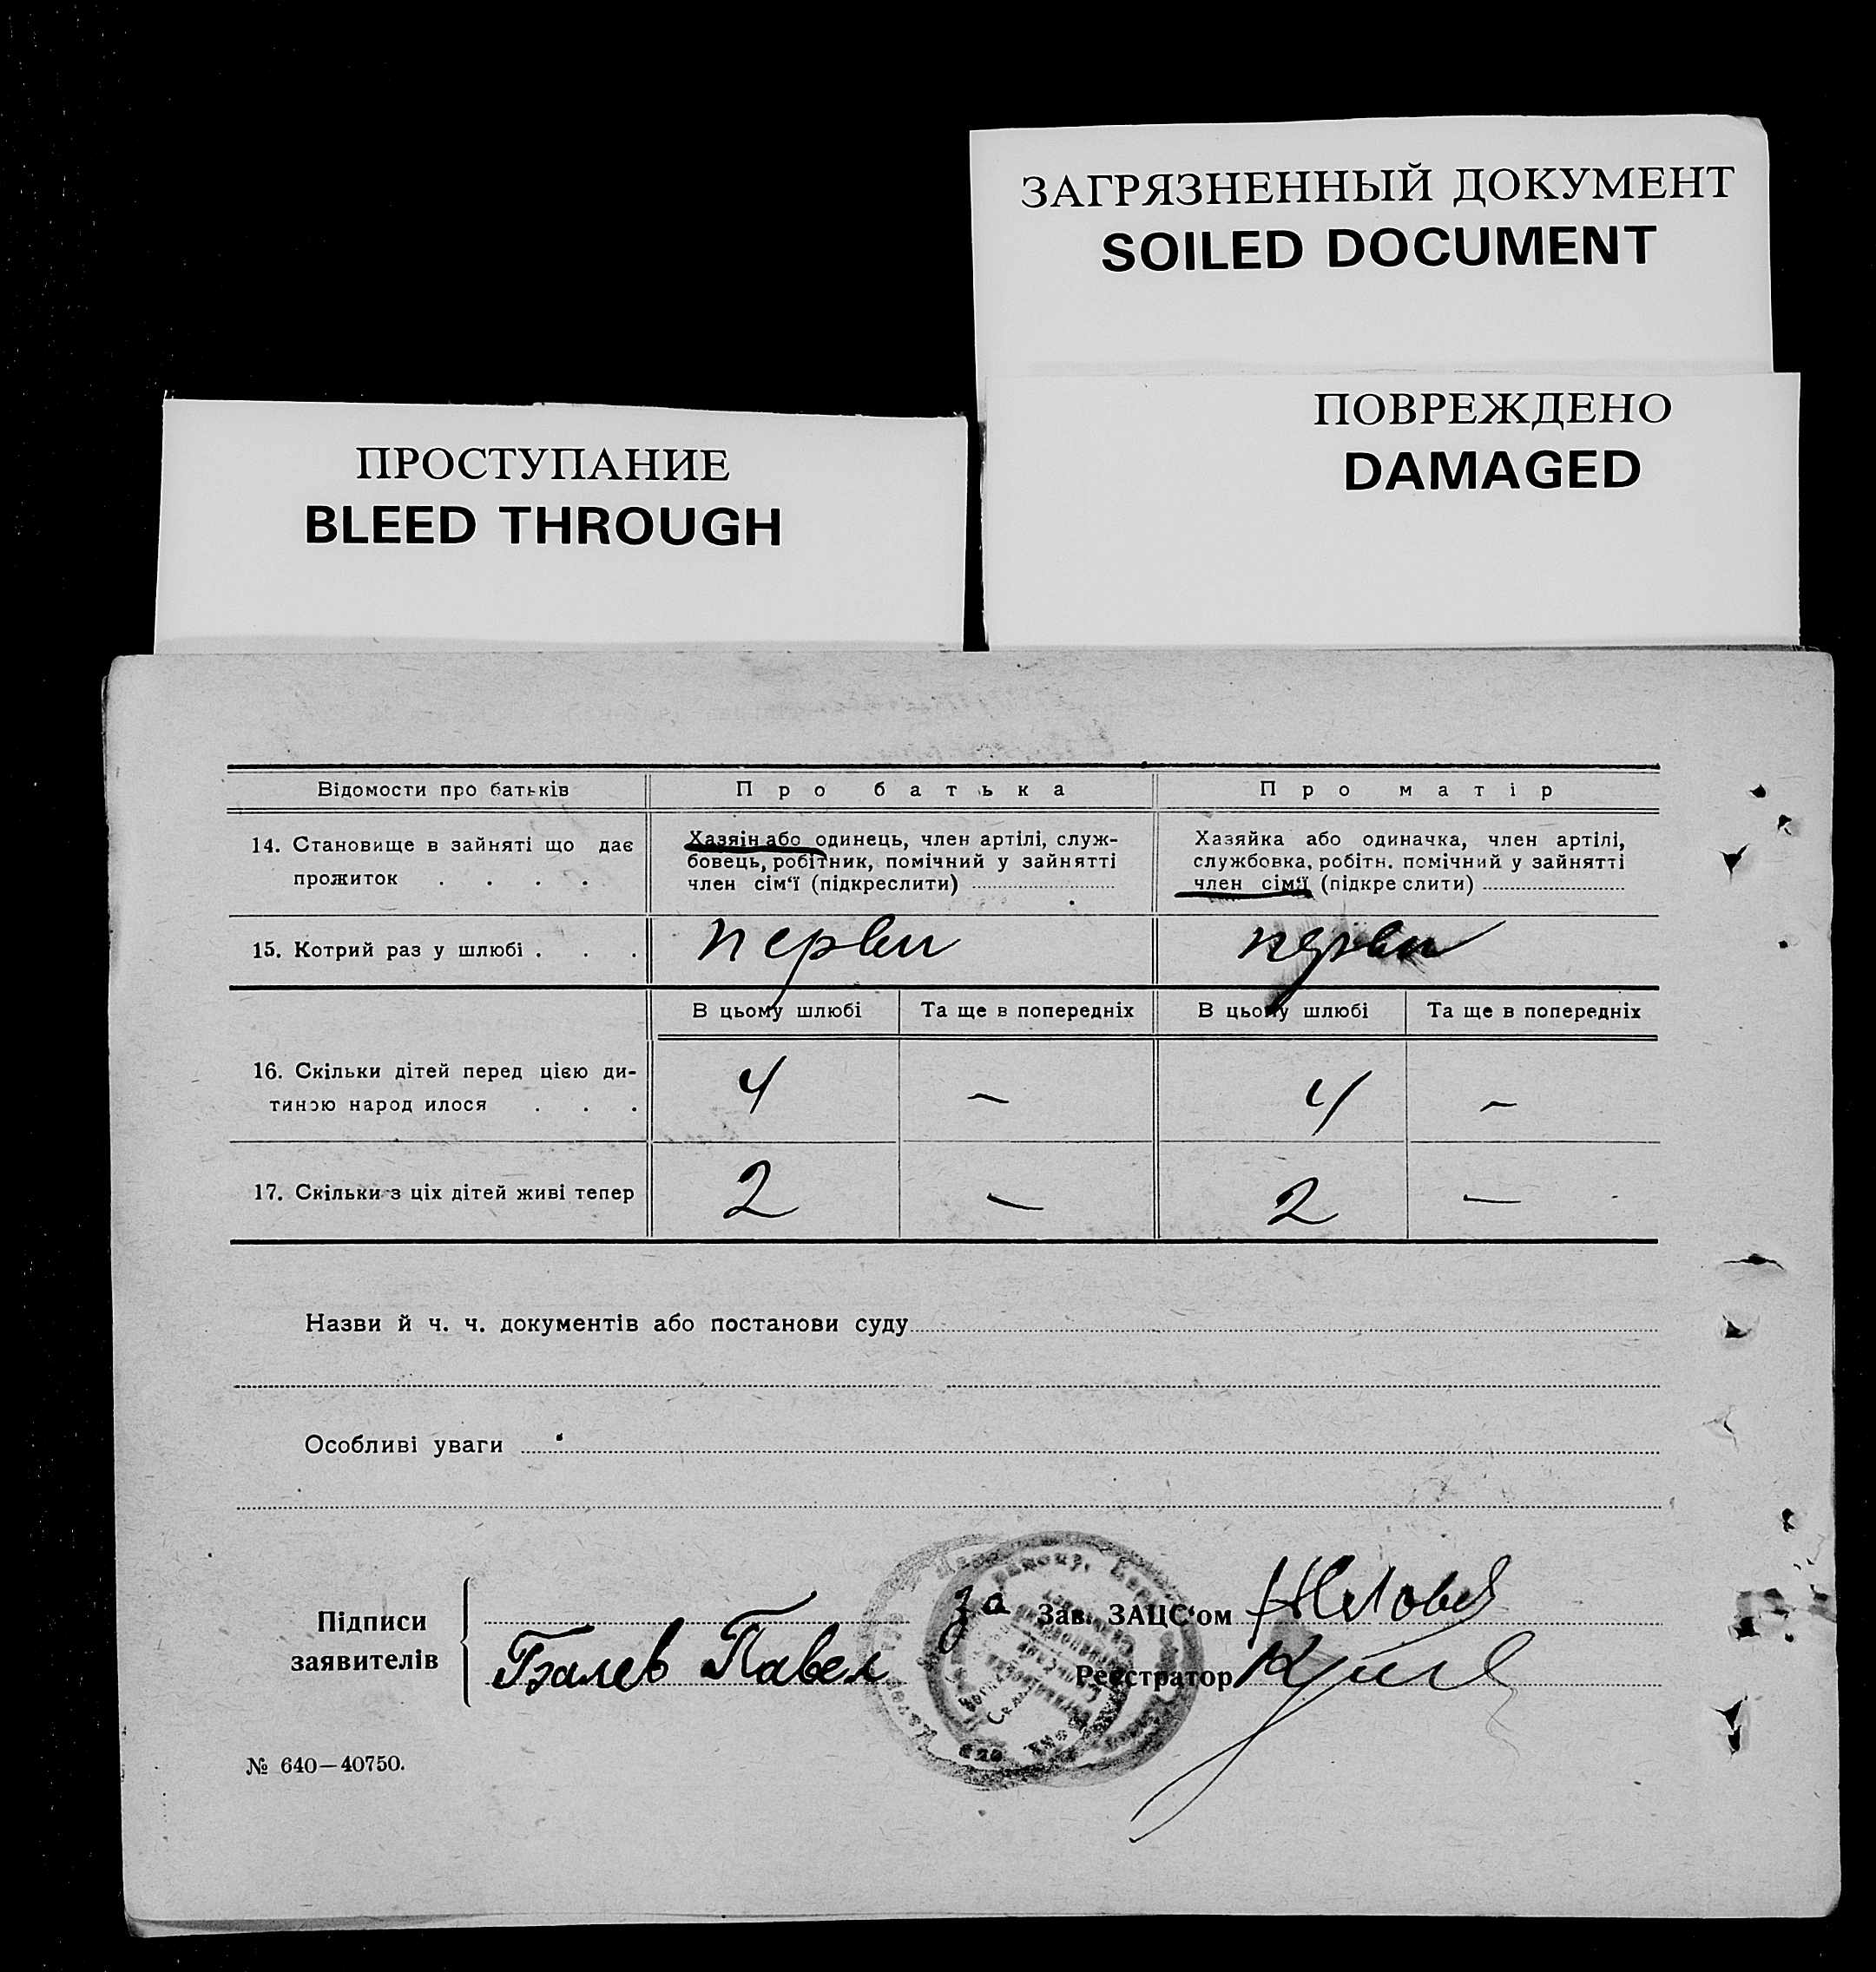 ЗАГРЯЗНЕННЫЙ ДОКУМЕНТ
SOILED DOCUMENT
ПОВРЕЖДЕНО
DAMAGED
ПРОСТУПАНИЕ
BLEED THROUGH
Відомости про батьків
Про батька
Про матір
14. Становище в зайняті що дає
прожиток . . . .
Хазяін або одинець, член артілі, служ-
бовець, робітник, помічний у зайнятті
член сім'ї (підкреслити)
Хазяйка або одиначка, член артілі,
службовка, робітн. помічний у зайнятті
член сім'ї (підкре слити)
15. Котрий раз у шлюбі . . .
перви
перви
В цьому шлюбі
Та ще в попередніх
В цьому шлюбі
Та ще в попередніх
16. Скільки дітей перед цією ди-
тиною народ илося . . .
4
–
4
–
17. Скільки з ціх дітей живі тепер
2
–
2
–
Назви й ч. ч. документів або постанови суду
Особливі уваги
Підписи
заявителів
Павел
за Зав. ЗАЦС'ом
Реєстратор
№ 640—40750.